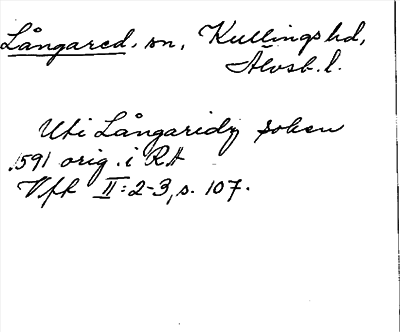 Långared. sn, Kullings hd,
Älvsb. l.
Uti Långaridz Soken
1591 orig. i RA
Vfk II: 2-3, s. 107.